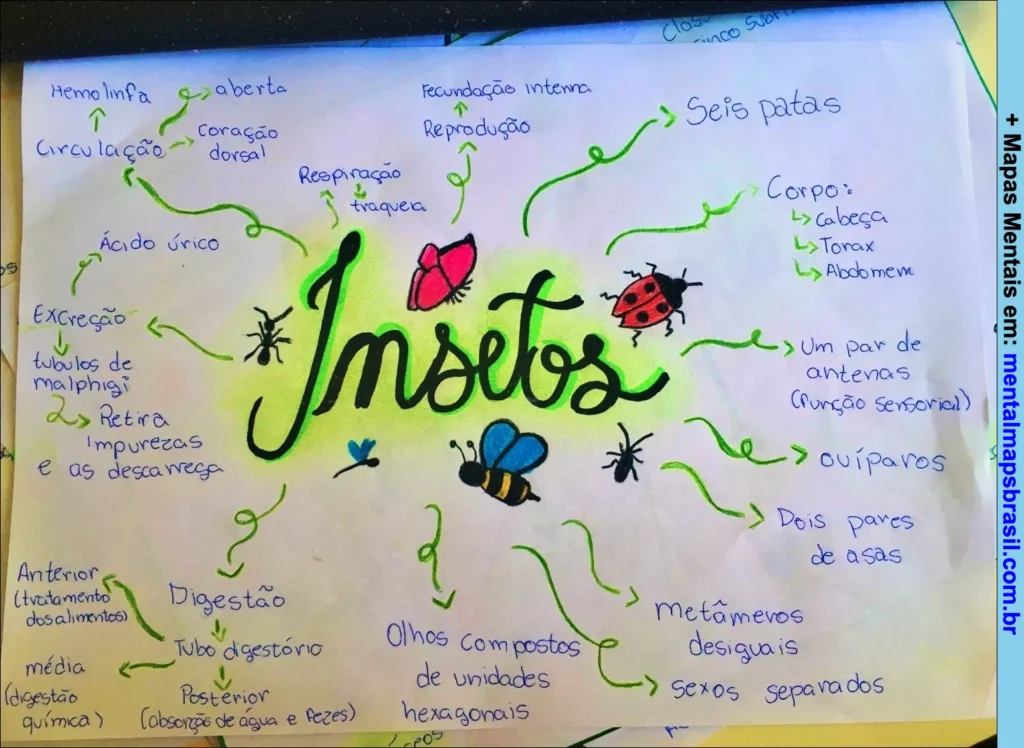 Insetos
Hemolinfa
aberta
Circulação
Coração
dorsal
Respiração
traqueia
Fecundação interna
Reprodução
Seis patas
Corpo:
Cabeça
Torax
Abdomem
Um par de
antenas
(função sensorial)
ovíparos
Dois pares
de asas
metâmeros
desiguais
sexos separados
Olhos compostos
de unidades
hexagonais
Digestão
Tubo digestório
Anterior
(tratamento
dos alimentos)
média
(digestão
química)
Posterior
(absorção de água e fezes)
Ácido úrico
Excreção
tubulos de
malphigi
Retira
impurezas
e as descarrega
cinco
+ Mapas Mentais em: mentalmapsbrasil.com.br